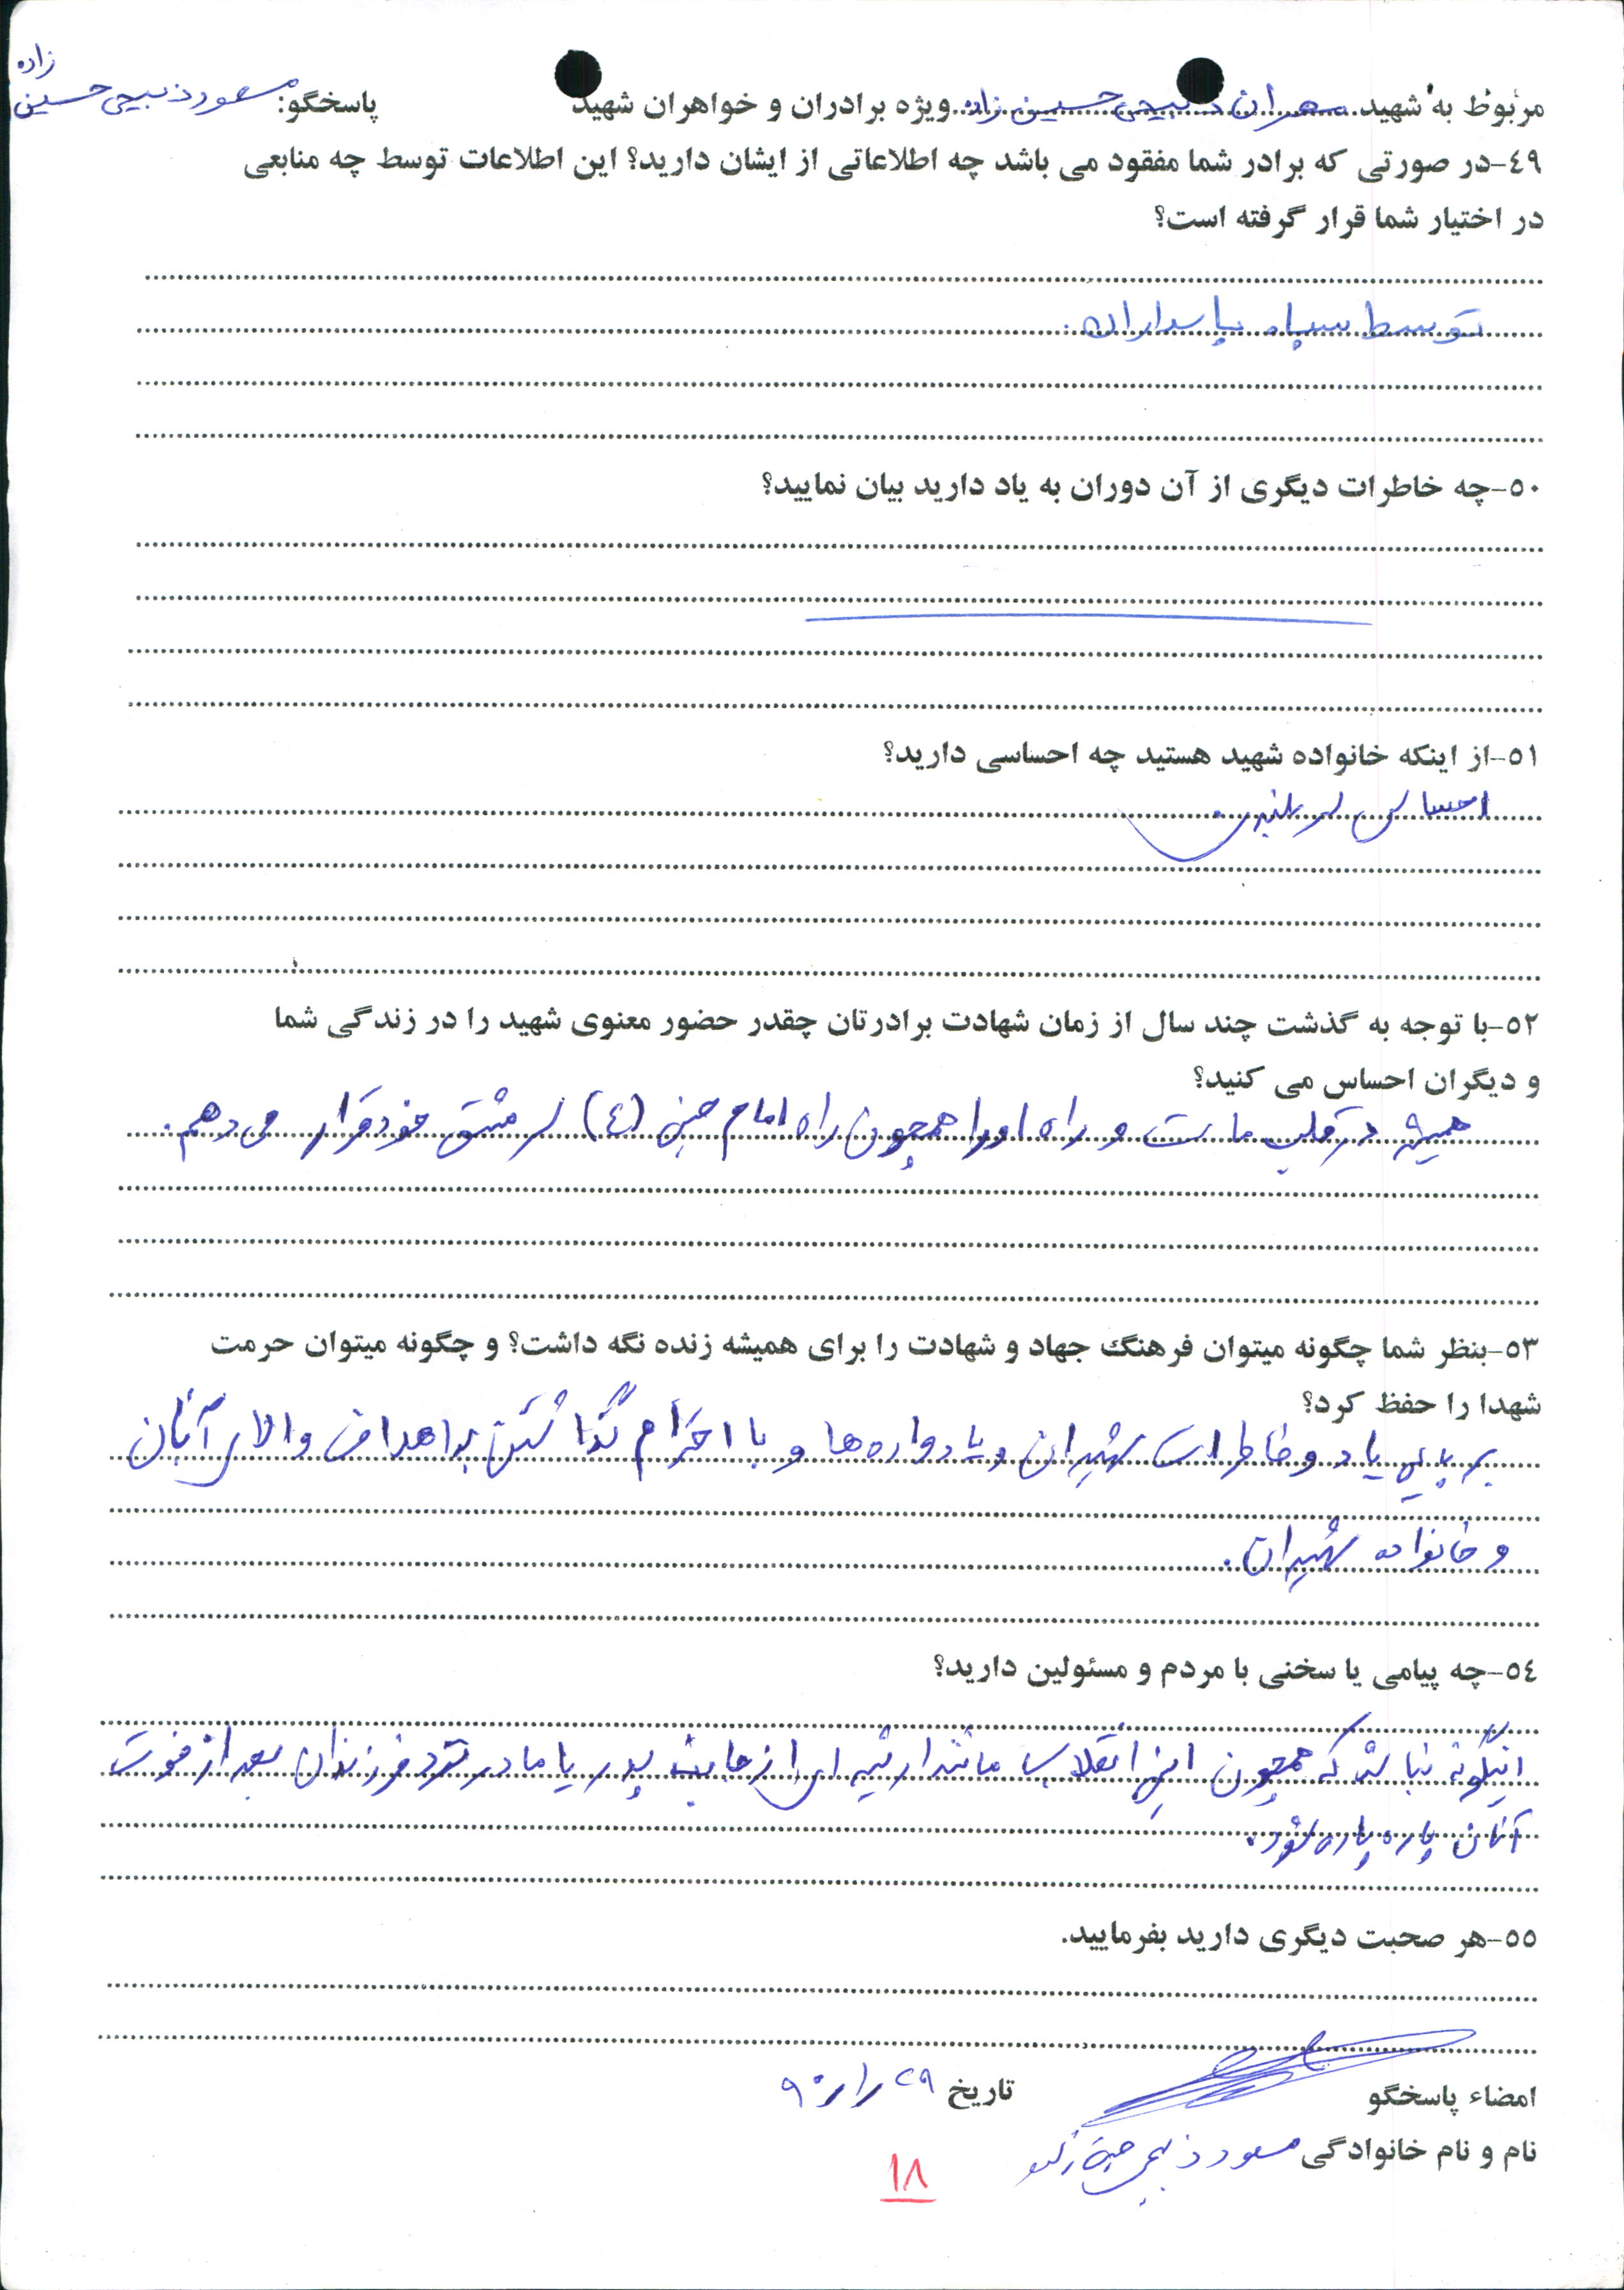 مربوط به شهید مهران ذبیحی حسین زاده ویژه برادران و خواهران شهید پاسخگو: مسعود ذبیحی حسین زاده
٤٩-در صورتی که برادر شما مفقود می باشد چه اطلاعاتی از ایشان دارید؟ این اطلاعات توسط چه منابعی
در اختیار شما قرار گرفته است؟
توسط سپاه پاسداران.
٥٠-چه خاطرات دیگری از آن دوران به یاد دارید بیان نمایید؟
٥١-از اینکه خانواده شهید هستید چه احساسی دارید؟
احساس سربلندی.
٥٢-با توجه به گذشت چند سال از زمان شهادت برادرتان چقدر حضور معنوی شهید را در زندگی شما
و دیگران احساس می کنید؟
همیشه در قلب ماست و راه او را همچون راه امام حسین (ع) سرمشق خود قرار می دهم.
٥٣-بنظر شما چگونه میتوان فرهنگ جهاد و شهادت را برای همیشه زنده نگه داشت؟ و چگونه میتوان حرمت
شهدا را حفظ کرد؟
بر پایی یاد و خاطرات شهیدان و یادواره ها و با احترام گذاشتن به اهداف والای آنان
و خانواده شهیدان.
٥٤-چه پیامی یا سخنی با مردم و مسئولین دارید؟
اینگونه نباشد که همچون این انقلاب مانند ارثیه ای از جانب پدر یا مادر نزد فرزندان بعد از فوت
آنان پاره پاره شود.
٥٥-هر صحبت دیگری دارید بفرمایید.
امضاء پاسخگو تاریخ ۲۹/۱/۹۰
نام و نام خانوادگی مسعود ذبیحی حسین زاده
۱۸